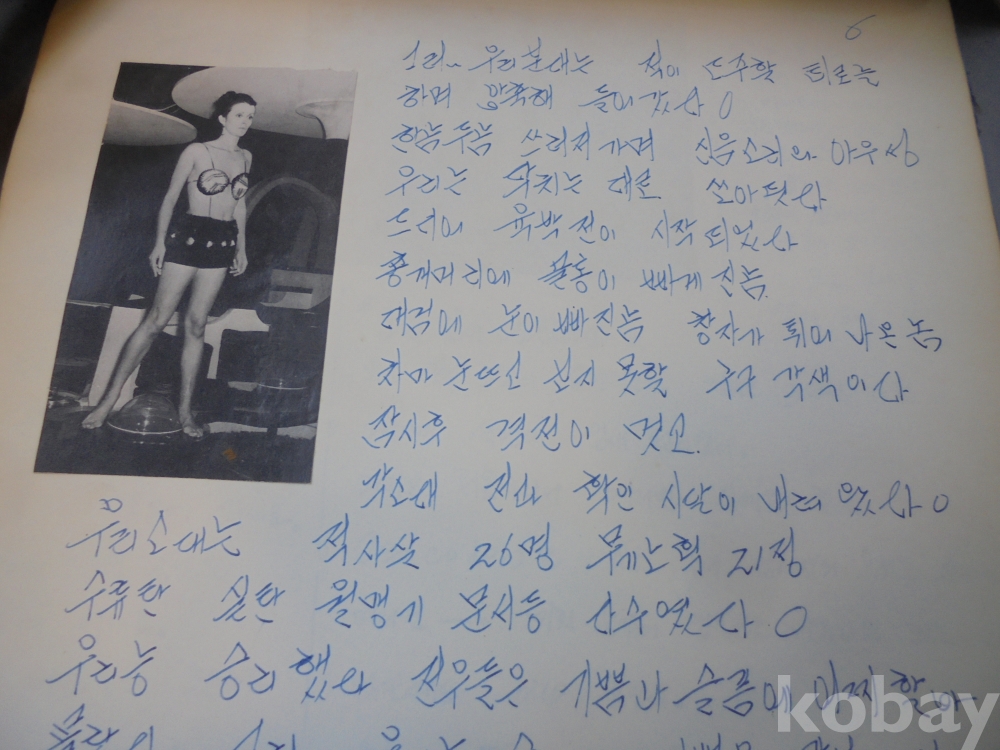 6
우리분대는 적이 도주할 퇴로를
하며 돌아갔다
한놈두놈 쓰러져가며 신음소리와 아우성
우리는 닥치는 대로 쏘아댔다
드디어 육박전이 시작 되었다
총개머리에 골통이 빠게진놈.
대검에 눈이빠진놈 창자가 튀어 나온 놈
차마 눈뜨고 보지 못할 각색이다
잠시후 격전이 멎고.
각소대 전과 확인 시달이 내려 왔다
우리소대는 적사살 26명 무기노획 21정
수류탄 실탄 월맹기 문서등 다수였다
우리는 승리했다 전우들은 기쁨과 슬픔에 어찌할바
kobay